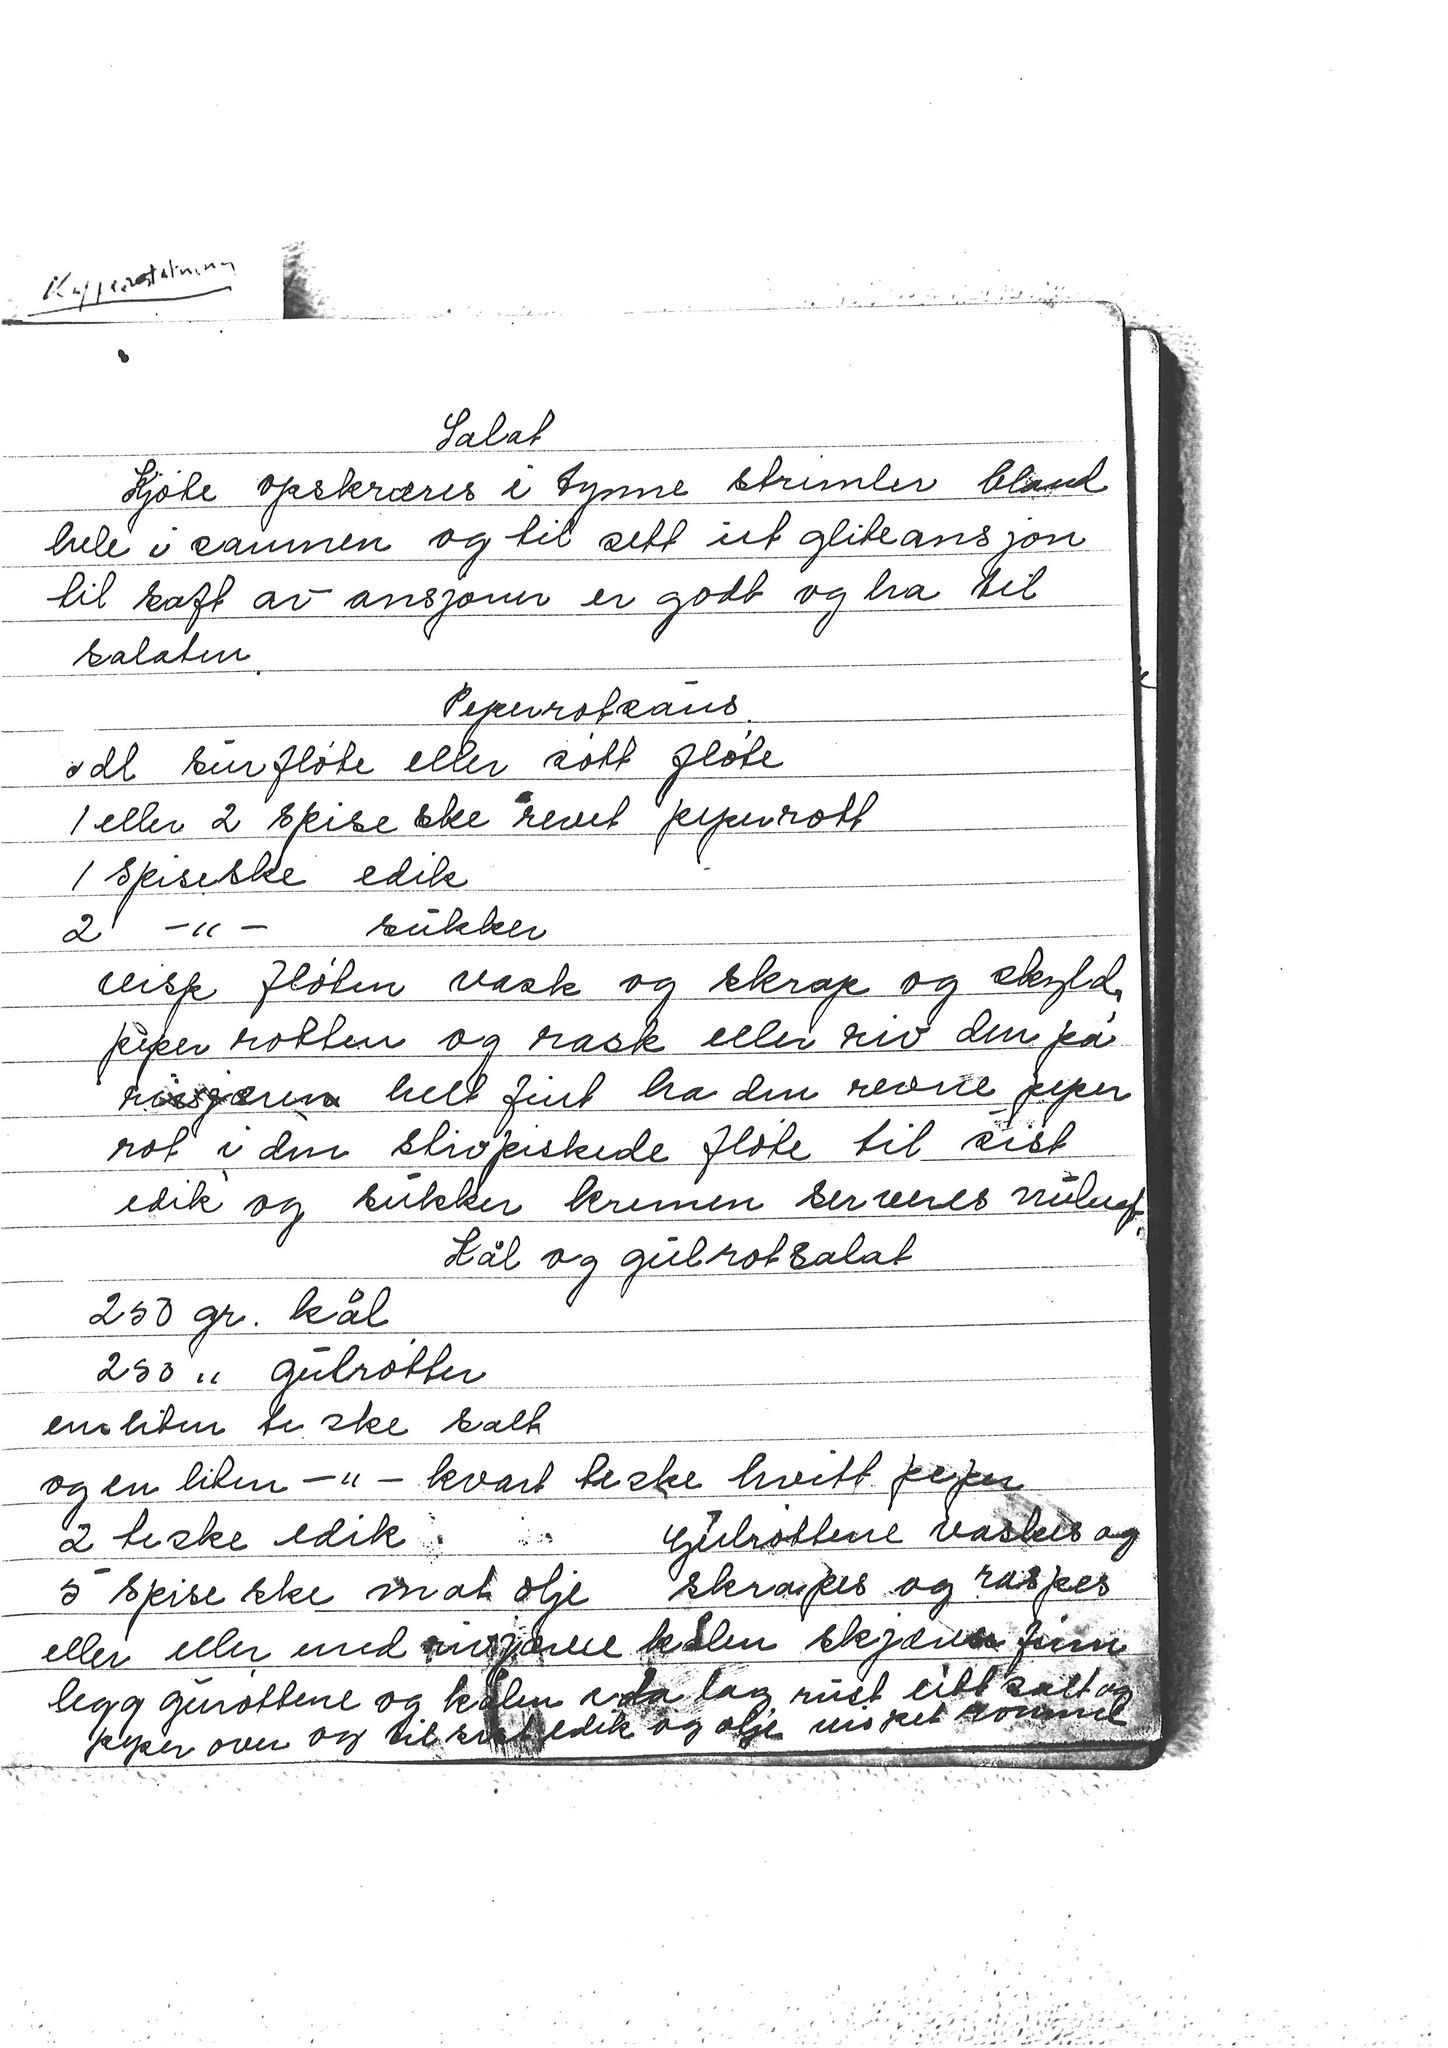 Salat
Kjöte opskræres i tynne strimler bland
hele i sammen og til sett ut gliteansjon
til saft av ansjouer er godt og ha til
salaten.
Peperrotsaus.
dl surflöte eller sött flöte
1 eller 2 spise ske revet peperrott
1 spiseske edik
2 -"- sukker
visp flöten vask og skrap og skyld
peper rotten og rask eller riv den på
rivsjæren helt fint ha den revne peper
rot i den stivpiskede flöte til sist
edik og sukker kremen serveres
Kål og gulrotsalat
250 gr. kål
250 " gulrötter
en liten te ske salt
og en liten -"- kvart teske hvitt peper
2 teske edik Gulröttene vaskes og
5 spise ske mat olje skrapes og raspes
eller eller med rivjærne kålen skjæres finn
legg guröttene og kålen lag litt salt og
peper over og til sist edik og olje